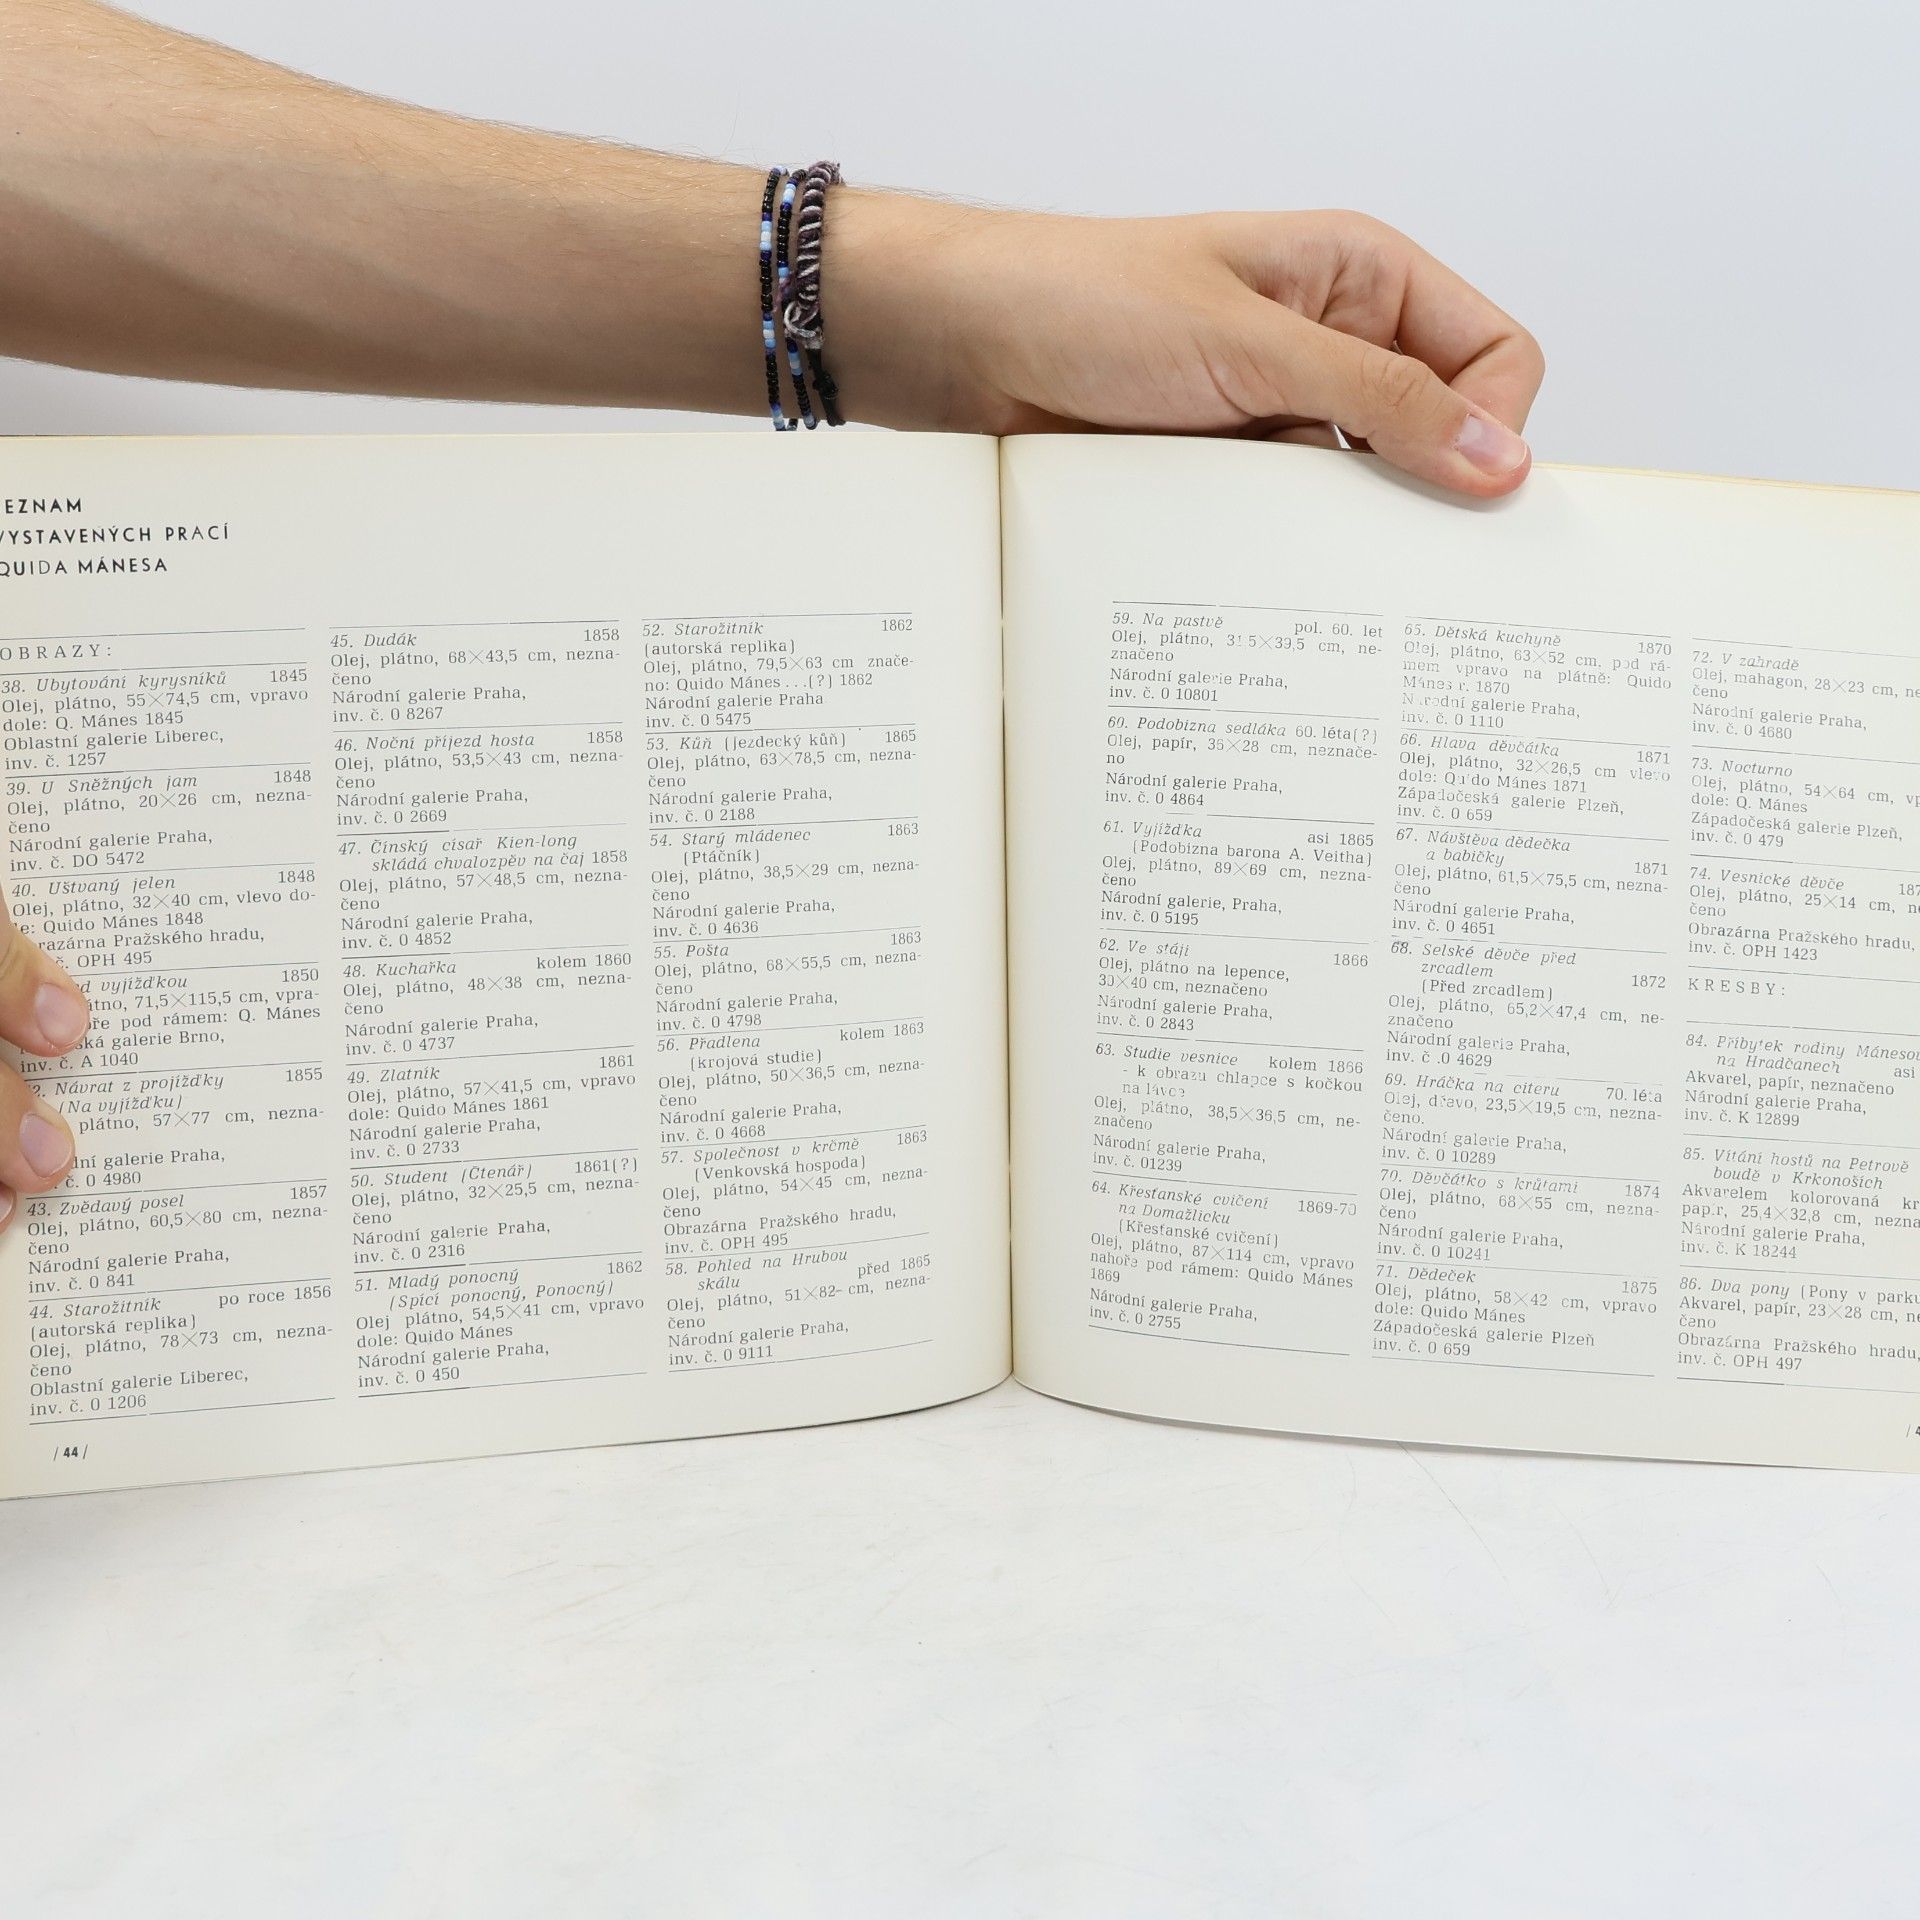 EZNAM
VYSTAVENÝCH PRACÍ
QUIDA MÁNESA
OBRAZY:
38. Ubytování kyrysníků 1845
Olej, plátno, 55×74,5 cm, vpravo
dole: Q. Mánes 1845
Oblastní galerie Liberec,
inv. č. 1257
39. U Sněžných jam 1848
Olej, plátno, 20×26 cm, nezna-
čeno
Národní galerie Praha,
inv. č. DO 5472
40. Uštvaný jelen 1848
Olej, plátno, 32×40 cm, vlevo do-
le: Quido Mánes 1848
razárna Pražského hradu,
č. OPH 495
d vyjížďkou 1850
átno, 71,5×115,5 cm, vpra-
ře pod rámem: Q. Mánes
ská galerie Brno,
inv. č. A 1040
2. Návrat z projížďky 1855
(Na vyjížďku)
plátno, 57×77 cm, nezna-
ní galerie Praha,
č. 0 4980
43. Zvědavý posel 1857
Olej, plátno, 60,5×80 cm, nezna-
čeno
Národní galerie Praha,
inv. č. 0 841
44. Starožitník po roce 1856
(autorská replika)
Olej, plátno, 78×73 cm, nezna-
čeno
Oblastní galerie Liberec,
inv. č. 0 1206
/ 44 /
45. Dudák 1858
Olej, plátno, 68×43,5 cm, nezna-
čeno
Národní galerie Praha,
inv. č. 0 8267
46. Noční příjezd hosta 1858
Olej, plátno, 53,5×43 cm, nezna-
čeno
Národní galerie Praha,
inv. č. 0 2669
47. Čínský císař Kien-long
skládá chvalozpěv na čaj 1858
Olej, plátno, 57×48,5 cm, nezna-
čeno
Národní galerie Praha,
inv. č. 0 4852
48. Kuchařka kolem 1860
Olej, plátno, 48×38 cm, nezna-
čeno
Národní galerie Praha,
inv. č. 0 4737
49. Zlatník 1861
Olej, plátno, 57×41,5 cm, vpravo
dole: Quido Mánes 1861
Národní galerie Praha,
inv. č. 0 2733
50. Student (Čtenář) 1861(?)
Olej, plátno, 32×25,5 cm, nezna-
čeno
Národní galerie Praha,
inv. č. 0 2316
51. Mladý ponocný 1862
(Spící ponocný, Ponocný)
Olej plátno, 54,5×41 cm, vpravo
dole: Quido Mánes
Národní galerie Praha,
inv. č. 0 450
52. Starožitník 1862
(autorská replika)
Olej, plátno, 79,5×63 cm znače-
no: Quido Mánes ...(?) 1862
Národní galerie Praha
inv. č. 0 5475
53. Kůň (Jezdecký kůň) 1865
Olej, plátno, 63×78,5 cm, nezna-
čeno
Národní galerie Praha,
inv. č. 0 2188
54. Starý mládenec 1863
(Ptáčník)
Olej, plátno, 38,5×29 cm, nezna-
čeno
Národní galerie Praha,
inv. č. 0 4636
55. Pošta 1863
Olej, plátno, 68×55,5 cm, nezna-
čeno
Národní galerie Praha,
inv. č. 0 4798
56. Přadlena kolem 1863
(krojová studie)
Olej, plátno, 50×36,5 cm, nezna-
čeno
Národní galerie Praha,
inv. č. 0 4668
57. Společnost v krčmě 1863
(Venkovská hospoda)
Olej, plátno, 54×45 cm, nezna-
čeno
Obrazárna Pražského hradu,
inv. č. OPH 495
58. Pohled na Hrubou
skálu před 1865
Olej, plátno, 51×82- cm, nezna-
čeno
Národní galerie Praha,
inv. č. 0 9111
59. Na pastvě pol. 60. let
Olej, plátno, 31,5×39,5 cm, ne-
značeno
Národní galerie Praha,
inv. č. 0 10801
60. Podobizna sedláka 60. léta(?)
Olej, papír, 36×28 cm, neznače-
no
Národní galerie Praha,
inv. č. 0 4864
61. Vyjížďka asi 1865
(Podobizna barona A. Veitha)
Olej, plátno, 89×69 cm, nezna-
čeno
Národní galerie, Praha,
inv. č. 0 5195
62. Ve stáji 1866
Olej, plátno na lepence,
30×40 cm, neznačeno
Národní galerie Praha,
inv. č. 0 2843
63. Studie vesnice kolem 1866
- k obrazu chlapce s kočkou
na lávce
Olej, plátno, 38,5×36,5 cm, ne-
značeno
Národní galerie Praha,
inv. č. 01239
64. Křesťanské cvičení 1869-70
na Domažlicku
(Křesťanské cvičení)
Olej, plátno, 87×114 cm, vpravo
nahoře pod rámem: Quido Mánes
1869
Národní galerie Praha,
inv. č. 0 2755
65. Dětská kuchyně 1870
Olej, plátno, 63×52 cm, pod rá-
mem vpravo na plátně: Quido
Mánes r. 1870
Národní galerie Praha,
inv. č. 0 1110
66. Hlava děvčátka 1871
Olej, plátno, 32×26,5 cm vlevo
dole: Quido Mánes 1871
Západočeská galerie Plzeň,
inv. č. 0 659
67. Návštěva dědečka
a babičky 1871
Olej, plátno, 61,5×75,5 cm, nezna-
čeno
Národní galerie Praha,
inv. č. 0 4651
68. Selské děvče před
zrcadlem 1872
(Před zrcadlem)
Olej, plátno, 65,2×47,4 cm, ne-
značeno
Národní galerie Praha,
inv. č .0 4629
69. Hráčka na citeru 70. léta
Olej, dřevo, 23,5×19,5 cm, nezna-
čeno.
Národní galerie Praha,
inv. č. 0 10289
70. Děvčátko s krůtami 1874
Olej, plátno, 68×55 cm, nezna-
čeno
Národní galerie Praha,
inv. č. 0 10241
71. Dědeček 1875
Olej, plátno, 58×42 cm, vpravo
dole: Quido Mánes
Západočeská galerie Plzeň
inv. č. 0 659
72. V zahradě
Olej, mahagon, 28×23 cm, ne
čeno
Národní galerie Praha,
inv. č. 0 4680
73. Nocturno
Olej, plátno, 54×64 cm, vp
dole: Q. Mánes
Západočeská galerie Plzeň,
inv. č. 0 479
74. Vesnické děvče 187
Olej, plátno, 25×14 cm, ne
čeno
Obrazárna Pražského hradu,
inv. č. OPH 1423
KRESBY:
84. Příbytek rodiny Mánesov
na Hradčanech asi
Akvarel, papír, neznačeno
Národní galerie Praha,
inv. č. K 12899
85. Vítání hostů na Petrově
boudě v Krkonoších
Akvarelem kolorovaná kr
papír, 25,4×32,8 cm, nezna
Národní galerie Praha,
inv. č. K 18244
86. Dva pony (Pony v parku
Akvarel, papír, 23×28 cm, ne
čeno
Obrazárna Pražského hradu,
inv. č. OPH 497
/ 4